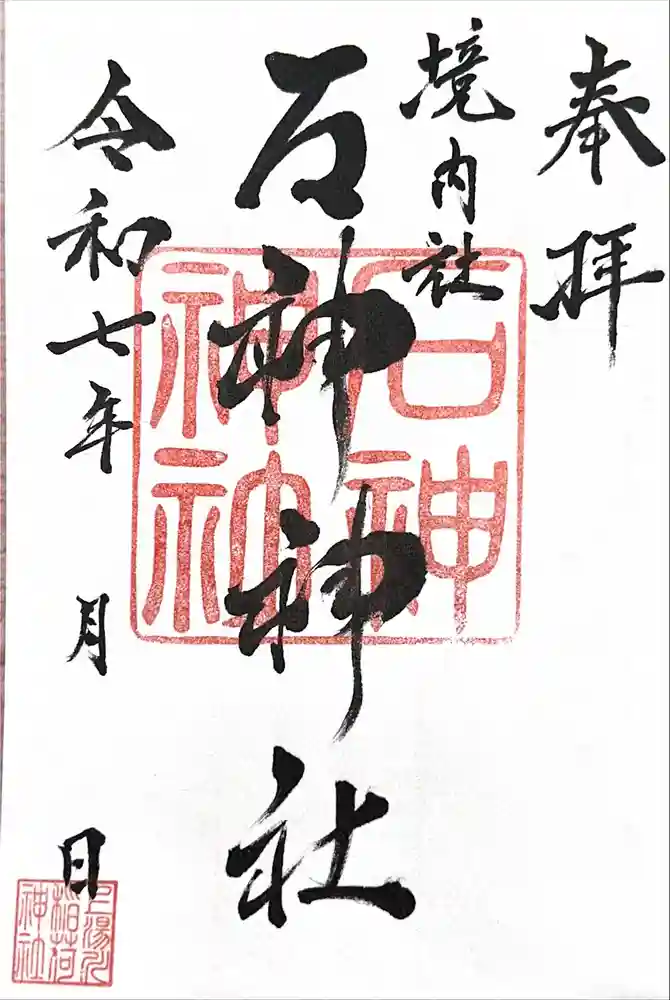 奉拝
境内社
石神神社
令和七年 月 日
石神神社
上湯川稲荷神社